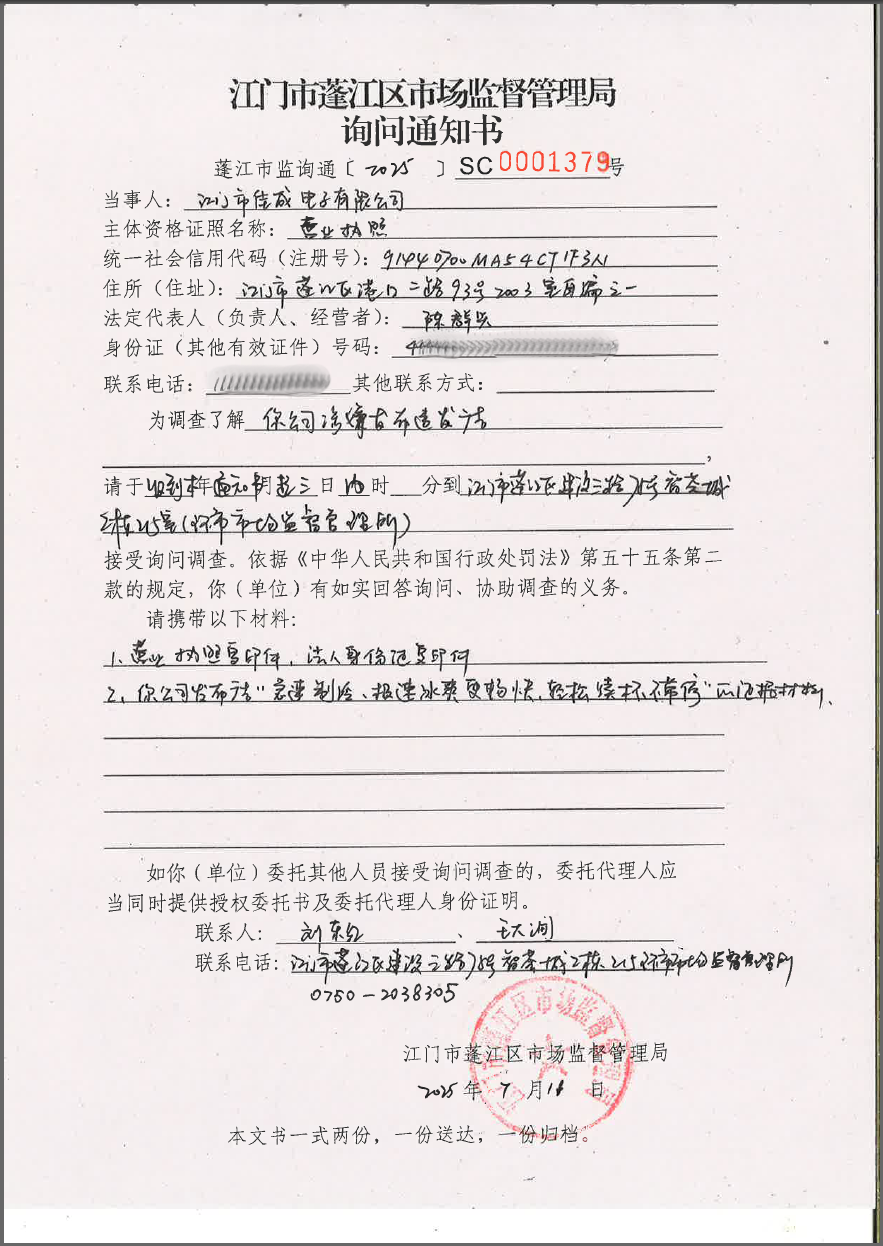 江门市蓬江区市场监督管理局
询问通知书
蓬江市监询通〔 2025 〕SC 0001379号
当事人： 江门市佳成电子有限公司
主体资格证照名称： 营业执照
统一社会信用代码（注册号）： 91440700MA54CT1F3N
住所（住址）： 江门市蓬江区港口二路93号2003室自编之一
法定代表人（负责人、经营者）： 陈群兴
身份证（其他有效证件）号码：
联系电话： 其他联系方式：
为调查了解 你公司涉嫌发布违法广告
，
请于 收到本 年 通知 月 起三 日 内 时 分到 江门市蓬江区建设三路 号智荟城
2栋215室（环市市场监督管理所）
接受询问调查。依据《中华人民共和国行政处罚法》第五十五条第二
款的规定，你（单位）有如实回答询问、协助调查的义务。
请携带以下材料：
1、营业执照复印件，法人身份证复印件
2、你公司发布广告“急速制冷、极速冰爽更畅快，轻松续杯不停”的证据材料、
如你（单位）委托其他人员接受询问调查的，委托代理人应
当同时提供授权委托书及委托代理人身份证明。
联系人： 刘东红 、 王大洵
联系电话： 江门市蓬江区建设三路 号智荟城2栋215环市市场监督管理所
0750-2038305
江门市蓬江区市场监督管理局
2025 年 7 月 18 日
本文书一式两份，一份送达，一份归档。
江门市蓬江区市场监督管理局